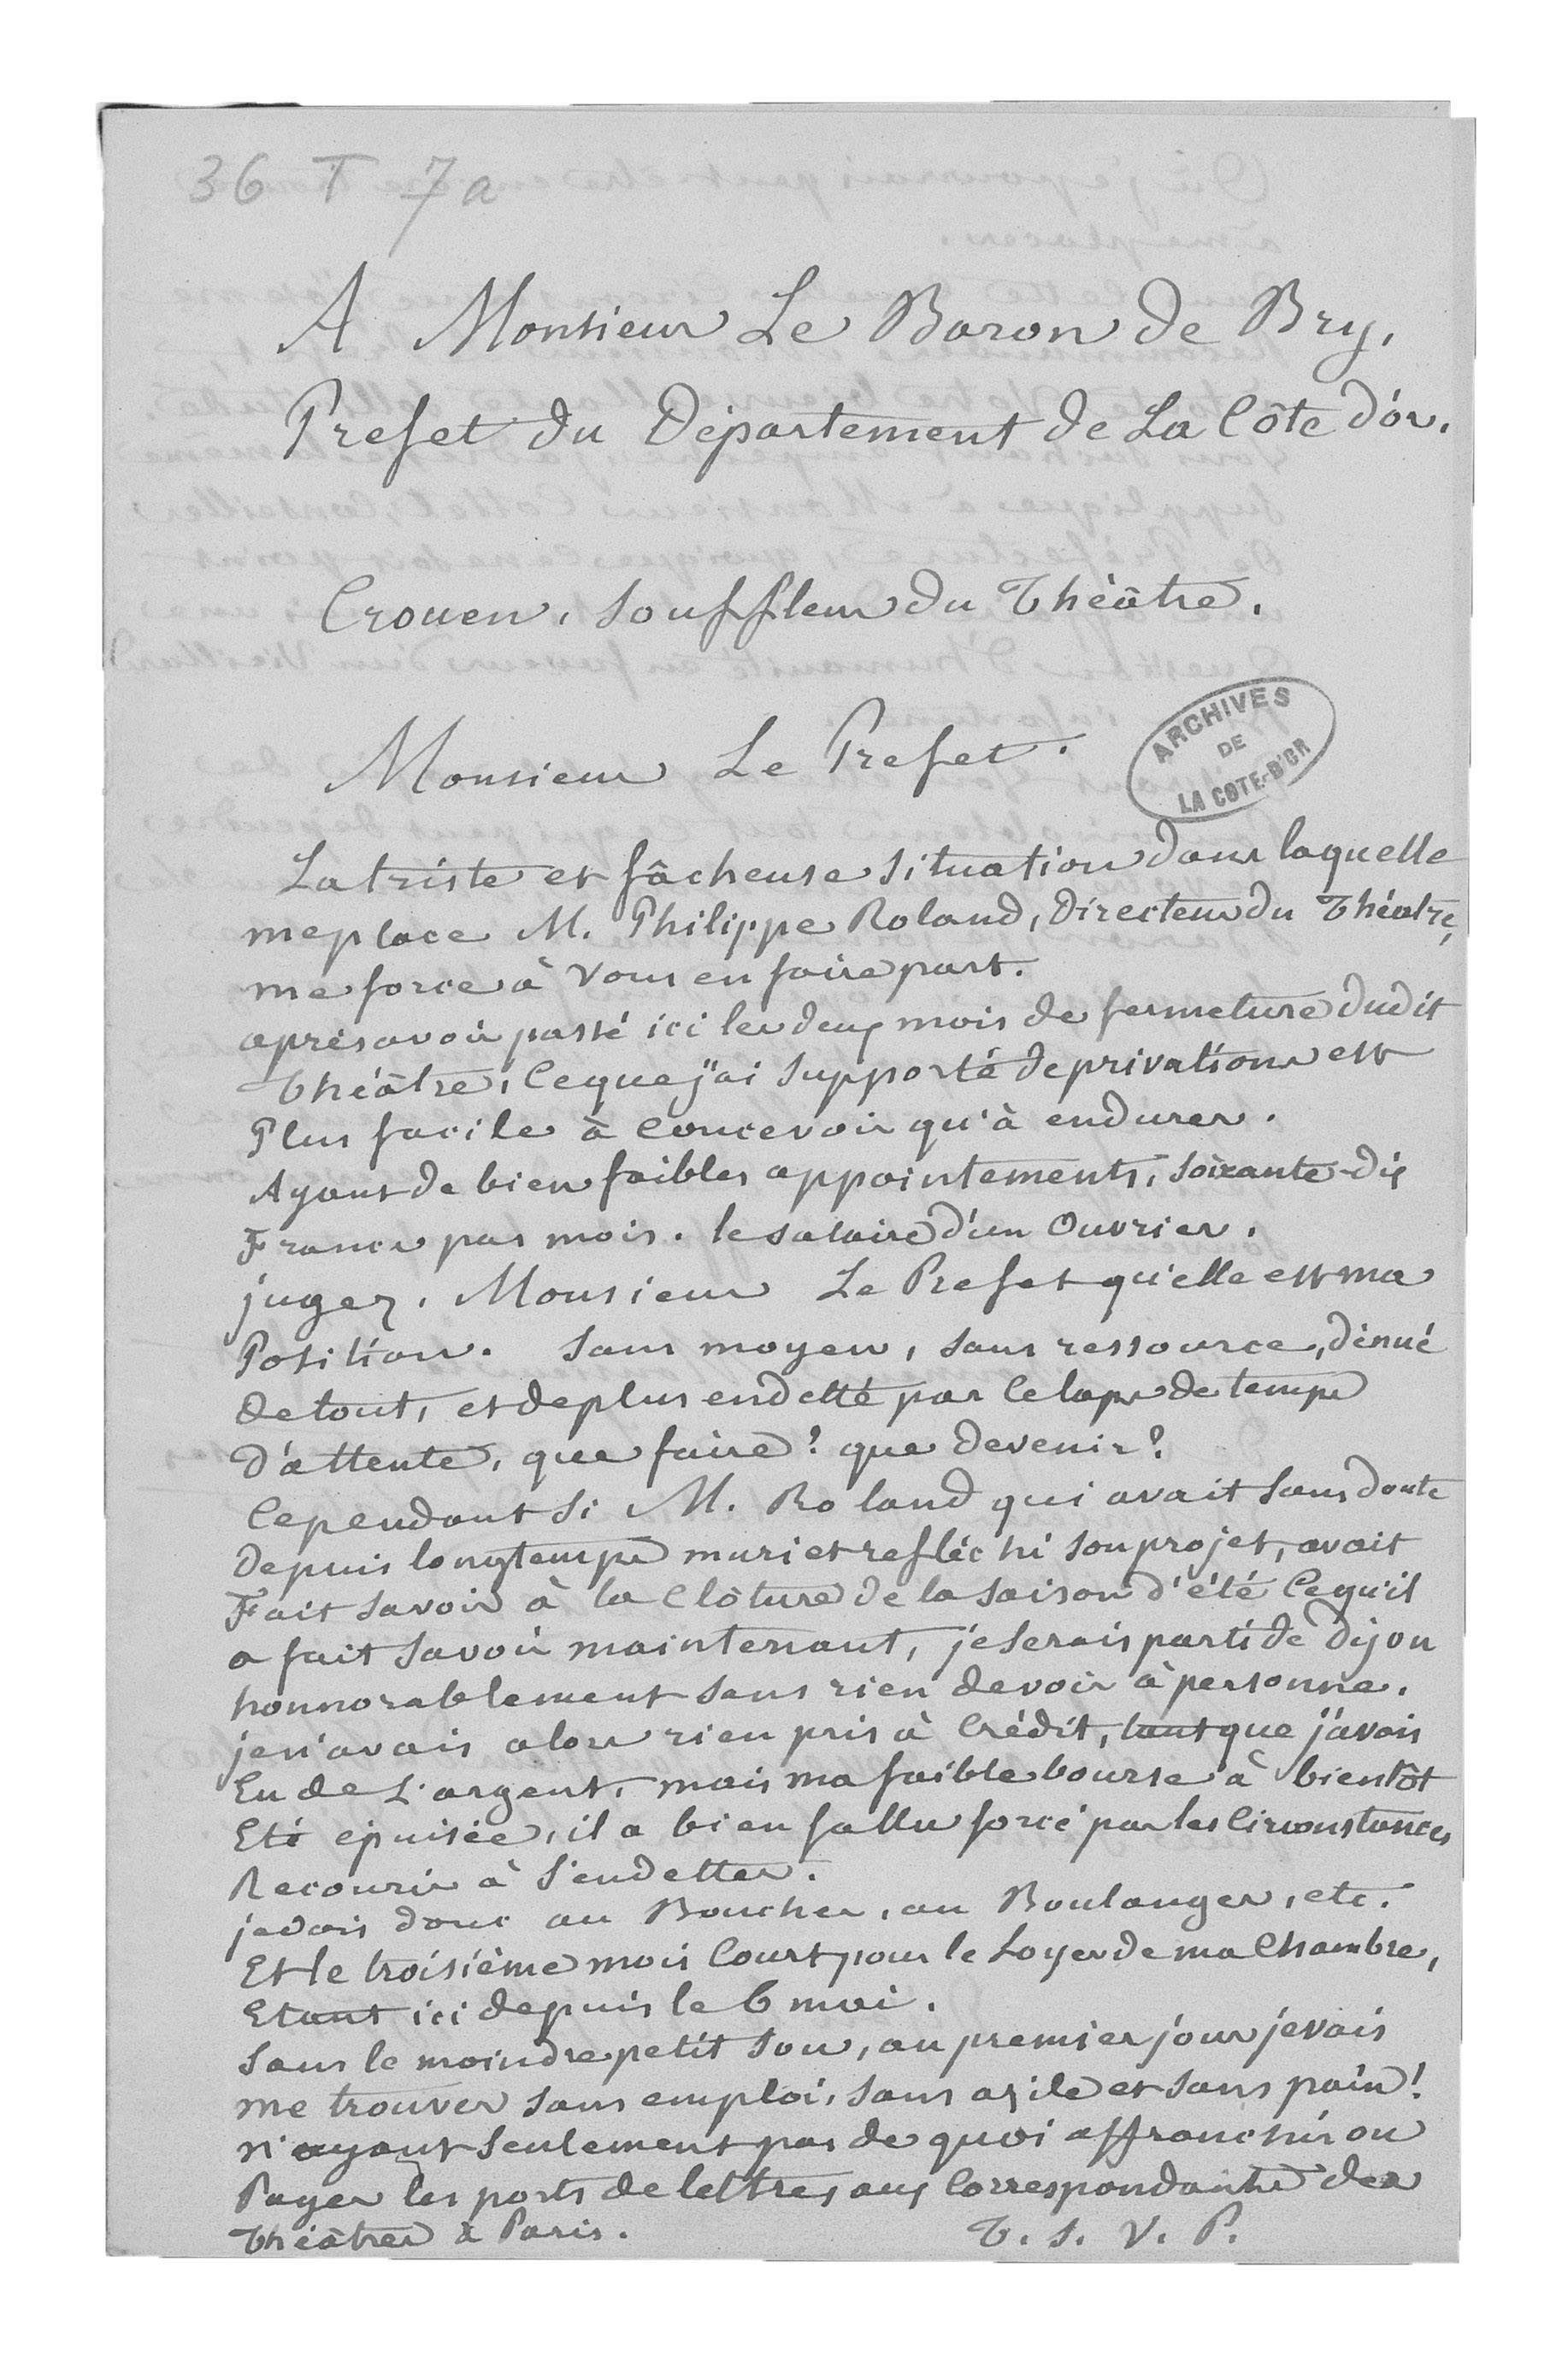 36 T 7a
A Monsieur Le Baron de Bry,
Prefet du Département de La Côte d'or.
Crouen, Souffleur du Théâtre.
Monsieur Le Prefet.
ARCHIVES
DE
LA COTE-D'OR
La triste et fâcheuse situation dans laquelle
me place M. Philippe Roland, Directeur du Théâtre,
me force à Vous en faire part.
après avoir passé ici les deux mois de fermeture dudit
Théâtre, Ce que j'ai supporté de privations est
Plus facile à Concevoir qu'à endurer.
Ayant de bien faibles appointements, soixante-dix
Francs par mois. le salaire d'un Ouvrier.
jugez, Monsieur Le Prefet qu'elle est ma
Position. Sans moyen, sans ressource, dénué
de tout, et de plus endetté par le laps de temps
d'attente, que faire? que devenir?
Cependant si M. Roland qui avait sans doute
depuis longtemps muri et refléchi son projet, avait
Fait savoir à la Clôture de la saison d'été Ce qu'il
a fait savoir maintenant, je serais parti de Dijon
honnorablement sans rien devoir à personne.
je n'avais alors rien pris à Crédit, tant que j'avois
Eu de L'argent, mais ma faible bourse à bientôt
Eté épuisée, il a bien fallu forcé par les Circonstances
Recourir à s'endetter.
je dois donc au Boucher, au Boulanger, etc.
Et le troisième mois Court pour le Loyer de ma Chambre,
Etant ici depuis le 6 mai.
Sans le moindre petit sou, au premier jour je vais
me trouver sans emploi, sans azile et sans pain!
n'ayant seulement pas de quoi affranchir ou
Payer les ports de lettres aux Correspondants des
Théâtres à Paris. T. S. V. P.